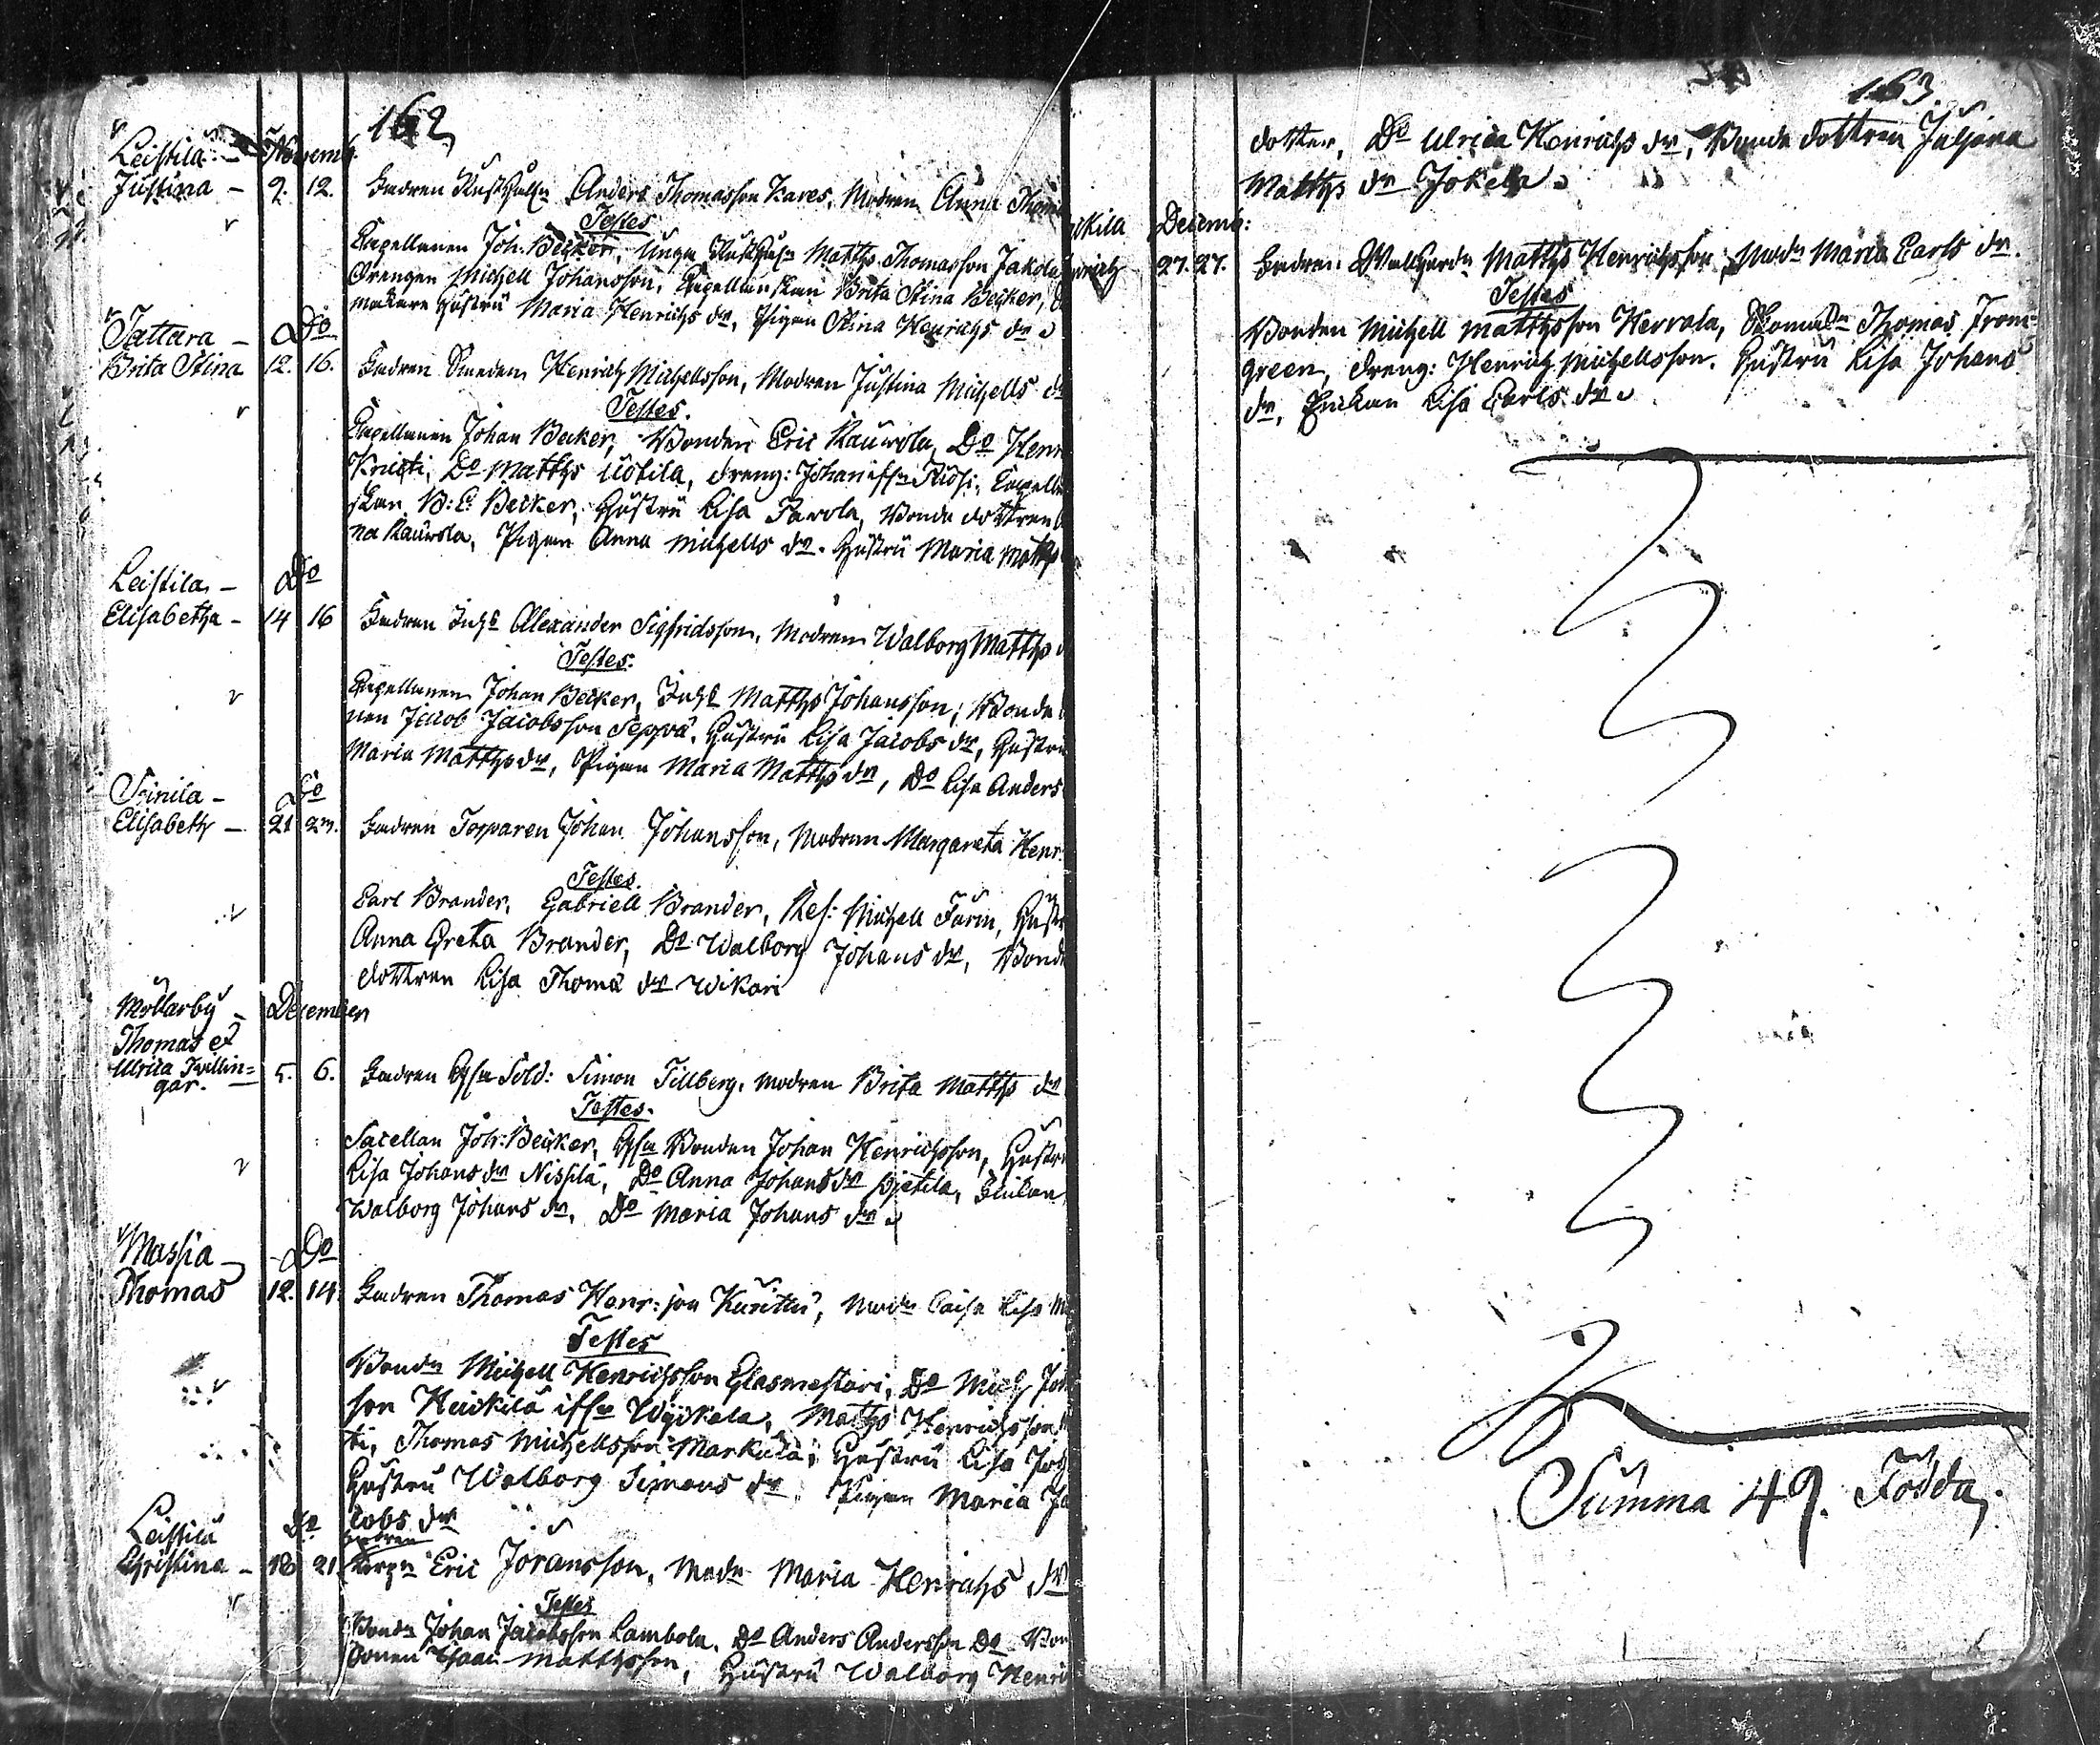 162
Leistila - Novemb.
Justina - 9. 12. Fadren Anders Thomasson Kares, Modren Anna Thom
Testes
Capellanen Joh: Becker, unga Matths Thomasson Jakola
Drengen Michell Johansson, Capellanskan Brita Stina Becker,
makare hustru Maria Henrichs dr, Pigan Stina Henrichs dr
Tattara - Do
Brita Stina 12. 16. Fadren Smeden Henrich Michellsson, Modren Justina Michells dr
Testes.
Capellanen Johan Becker, Bonden Eric Kauvola, Do Henr
Do Matths Uotila, dreng: Johan
skan B: C: Becker, Hustru Lisa Tavola, Bonde dottren
na Kauvola, Pigan Anna Michells dr. Hustru Maria Matths
Leistila - Do
Elisabetha - 14 16 Fadren Inhs Alexander Sigfridsson, Modren Walborg Matths
Testes:
Capellanen Johan Becker, Inhs Matths Johansson, Bonde
nen Jacob Jacobsson Seppä, Hustru Lisa Jacobs dr, Hustru
Maria Matths dr, Pigan Maria Matths dr, Do Lisa Anders
- Do
Elisabeth - 21 23. Fadren Torparen Johan Johansson, Modren Margareta Henr:
Testes
Carl Brander, Gabriell Brander, Michell Hustr
Anna Greta Brander, Do Walborg Johans dr, Bonde
dottren Lisa Thoma dr Wikari
Mollarby - December
Thomas et
Ulrica Tvillin= 5. 6. Fadren Sold: Simon Tillberg, modren Brita Matths dr
gar.
Testes.
Sacellan Joh: Becker, Bonden Johan Henrichsson, Hustru
Lisa Johans dr Nissilä, Do Anna Johans dr Pietila, Enkan
Walborg Johans dr, Do Maria Johans dr
Massia - Do
Thomas 12. 14. Fadren Thomas Henr: son Kurittu, Modn Caisa Lisa M
Testes
Bondn Michell Henrichsson Glasmestari, Do Mich Joh
son Heickilä Wyickala, Matths Henrichsson
ti, Thomas Michellsson Markula, Hustru Lisa Joh
Hustru Walborg Simons dr, Pigan Maria Ja
cobs dr
Leistila Do Fadren
Christina - 18 21. Torpn Eric Joransson, Modn Maria Henrichs dr
Testes
Bondn Johan Jacobsson Lambola, Do Anders Andersson Do Bon
Isaac Matthsson, Hustru Walborg Henri
163
dotter, Do Ulrica Henrichs dr, Bonde dottren Juliana
Matths dr Jokela
ickila Decemb:
enrich 27. 27. Fadren Matths Henrichsson, Modn Maria Carls dr.
Testes
Bonden Michell Matthsson Hevrola, Thomas From=
green, dreng: Henrich Michellsson. Hustru Lisa Johans
dr, Enckan Lisa Carls dr
Summa 49. Födda.